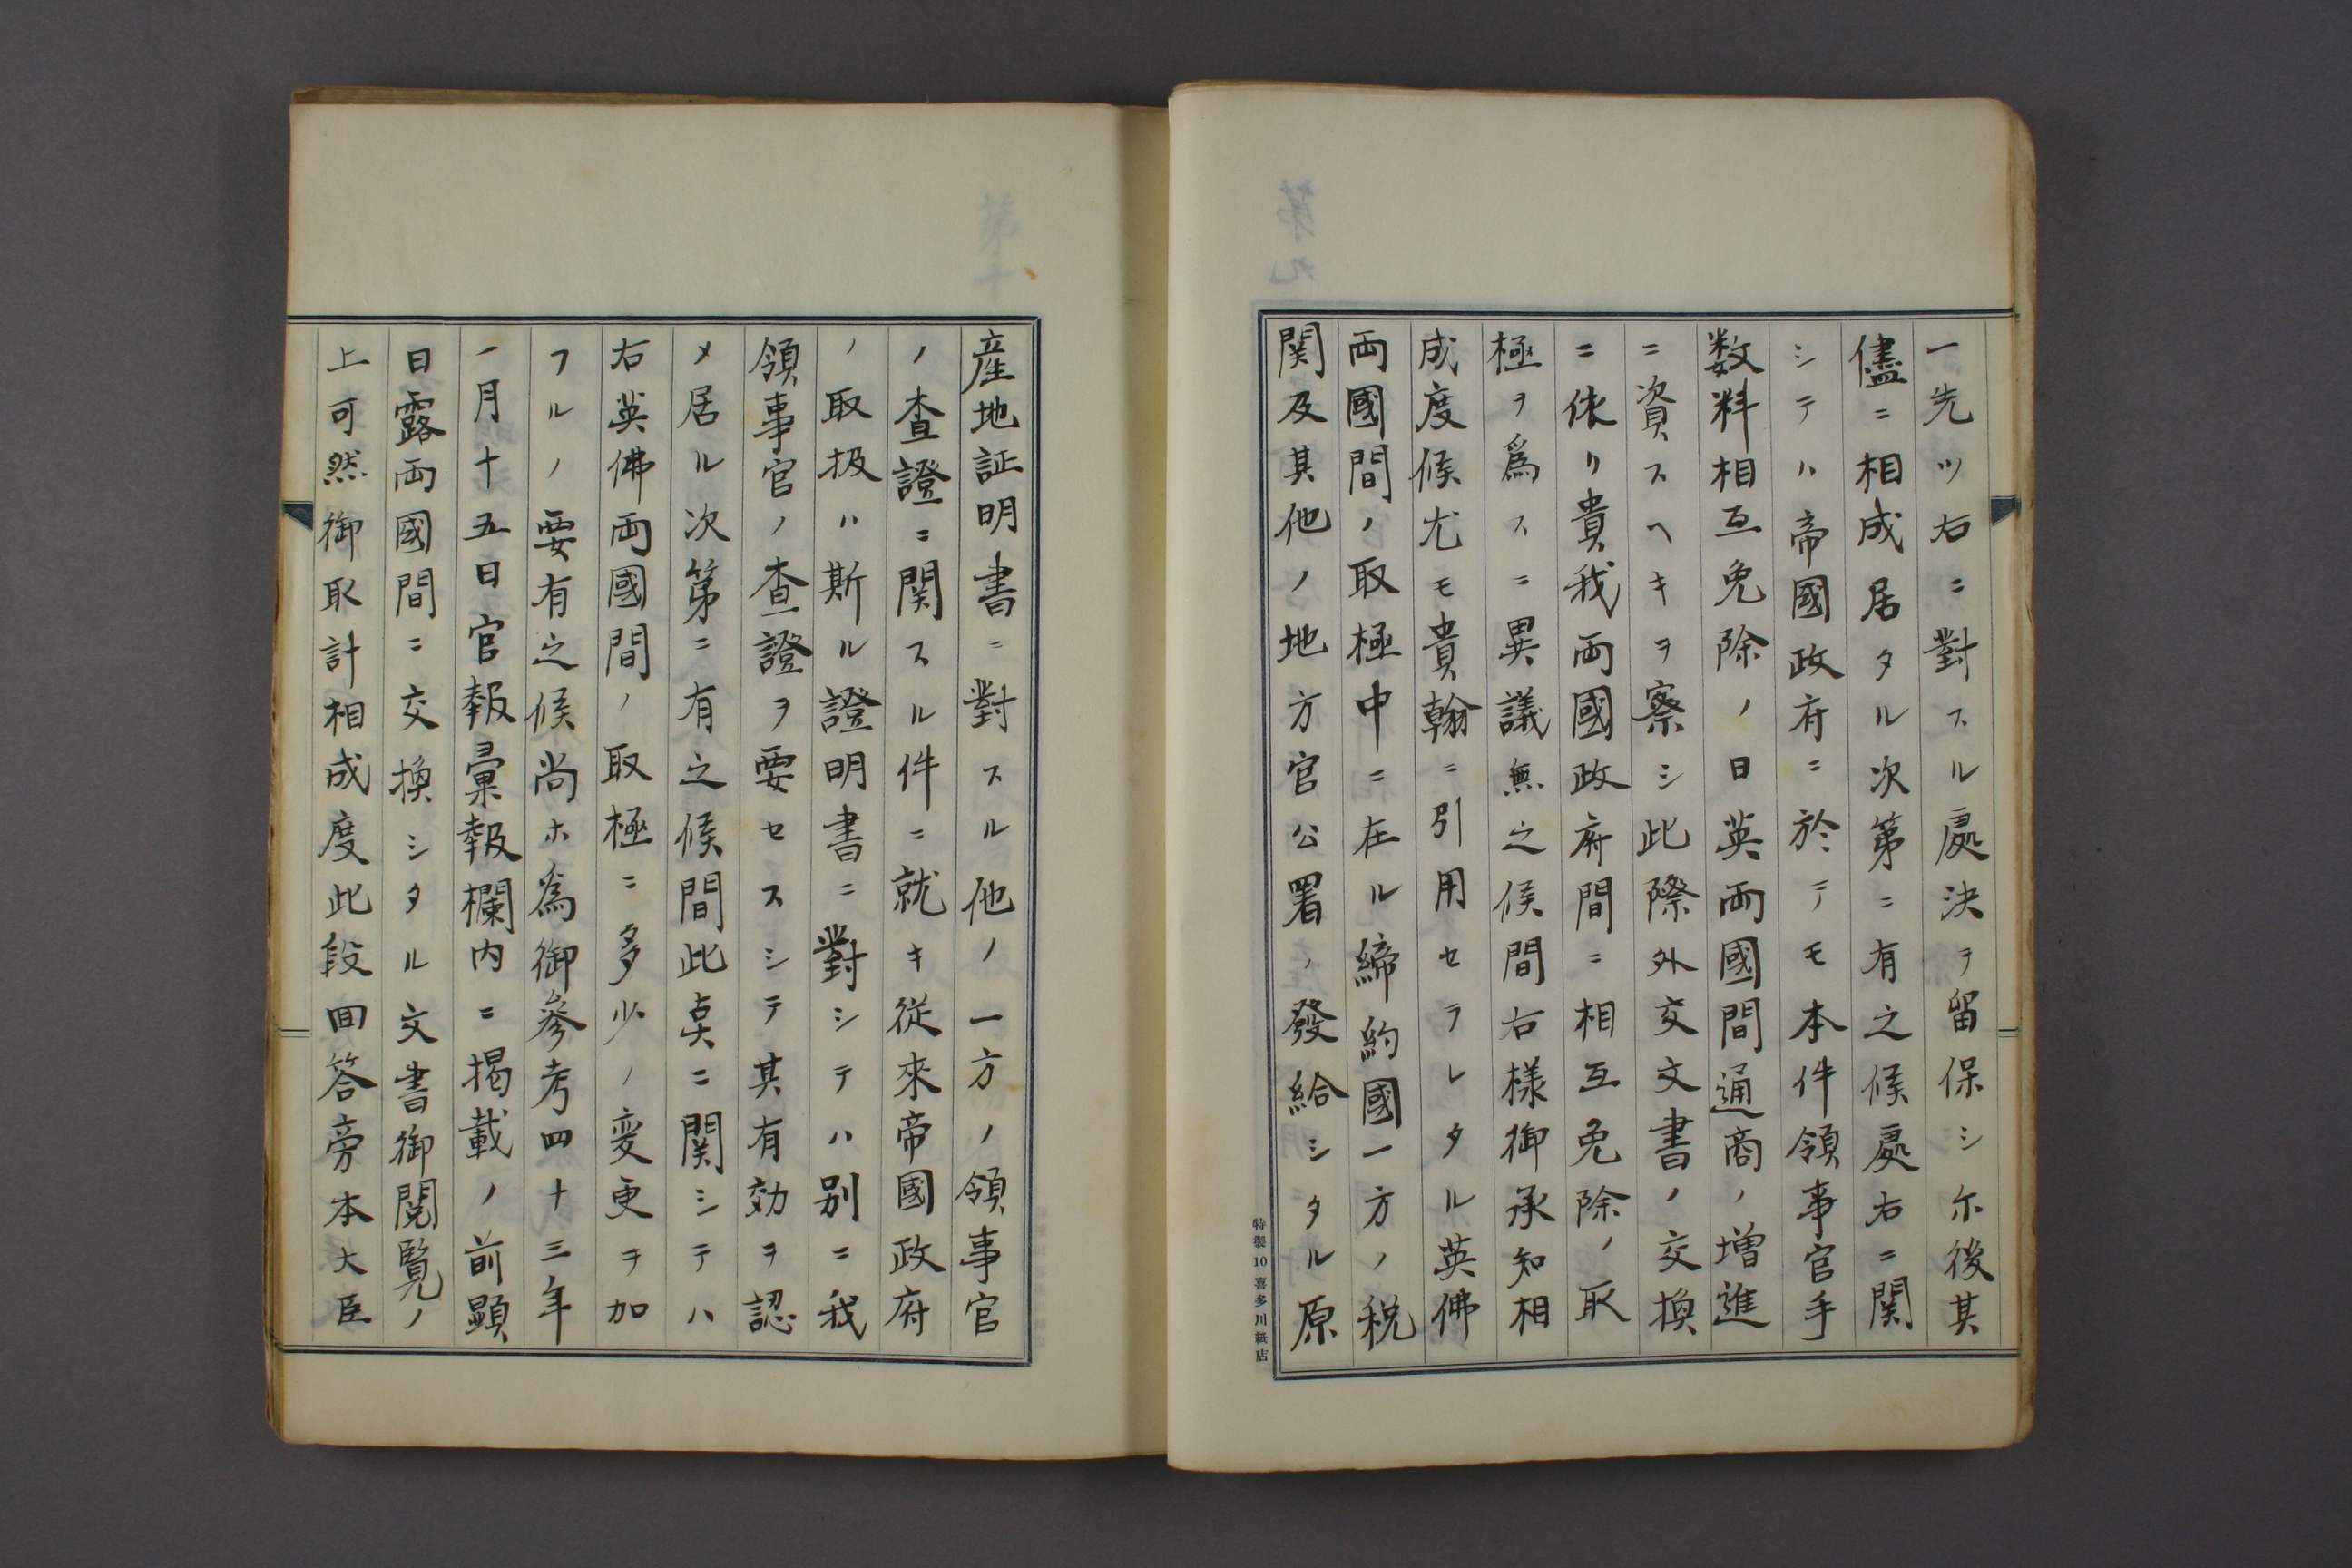 一先ツ右ニ對スル處決ヲ留保シ尓後其
儘ニ相成居タル次第ニ有之候處右ニ関
シテハ帝國政府ニ於テモ本件領事官手
数料相互免除ノ日英両國間通商ノ増進
ニ資スヘキヲ察シ此際外交文書ノ交換
ニ依リ貴我両國政府間ニ相互免除ノ取
極ヲ爲スニ異議無之候間右様御承知相
成度候尤モ貴翰ニ引用セラレタル英佛
両國間ノ取極中ニ在ル締約國一方ノ税
関及其他ノ地方官公署ノ發給シタル原
特製10喜多川紙店
産地証明書ニ對スル他ノ一方ノ領事官
ノ査證ニ関スル件ニ就キ従來帝國政府
ノ取扱ハ斯ル證明書ニ對シテハ別ニ我
領事官ノ査證ヲ要セスシテ其有効ヲ認
メ居ル次第ニ有之候間此点ニ関シテハ
右英佛両國間ノ取極ニ多少ノ変更ヲ加
フルノ要有之候尚ホ為御參考四十三年
一月十五日官報彙報欄内ニ掲載ノ前顕
日露両國間ニ交換シタル文書御閲覧ノ
上可然御取計相成度此段回答旁本大臣